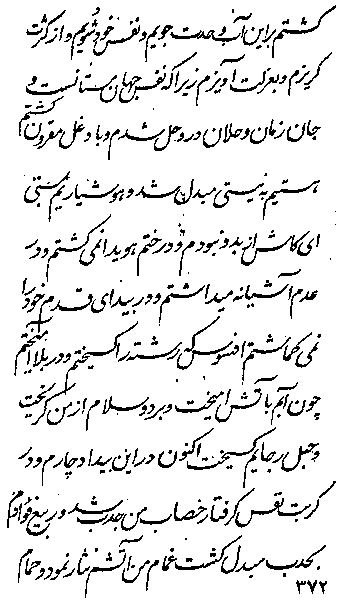 کشتم بر این آب وحدت جویم و نقس خود شویم و از کثرت
کریزم و بعزلت آویزم زیرا که نفس جهان مستانست و
جان زمان و حلان در وحل شدم و با دغل مقرون کشتم
هستیم به نیستی مبدل شد و هوشیاریم بمستی
ای کاش از بدو نبودم و در ختم هویدا نمی کشتم و در
عدم آشیانه میداشتم و در بیدای قدم خود را
نمی کماشتم افسوس که رشته را کسیختم و در بلا آمیختم
چون آبم با آتش امیخت و برد و سلام از من کریخت
و حبل رجایم کسیخت اکنون در این بیداد چارم و در
کربت نقس کرفتار خصاب من جدب شد و ربیع فوادم
بجدب مبدل کشت غمام من آتشم نثار نمود و حمام
۳۷۲